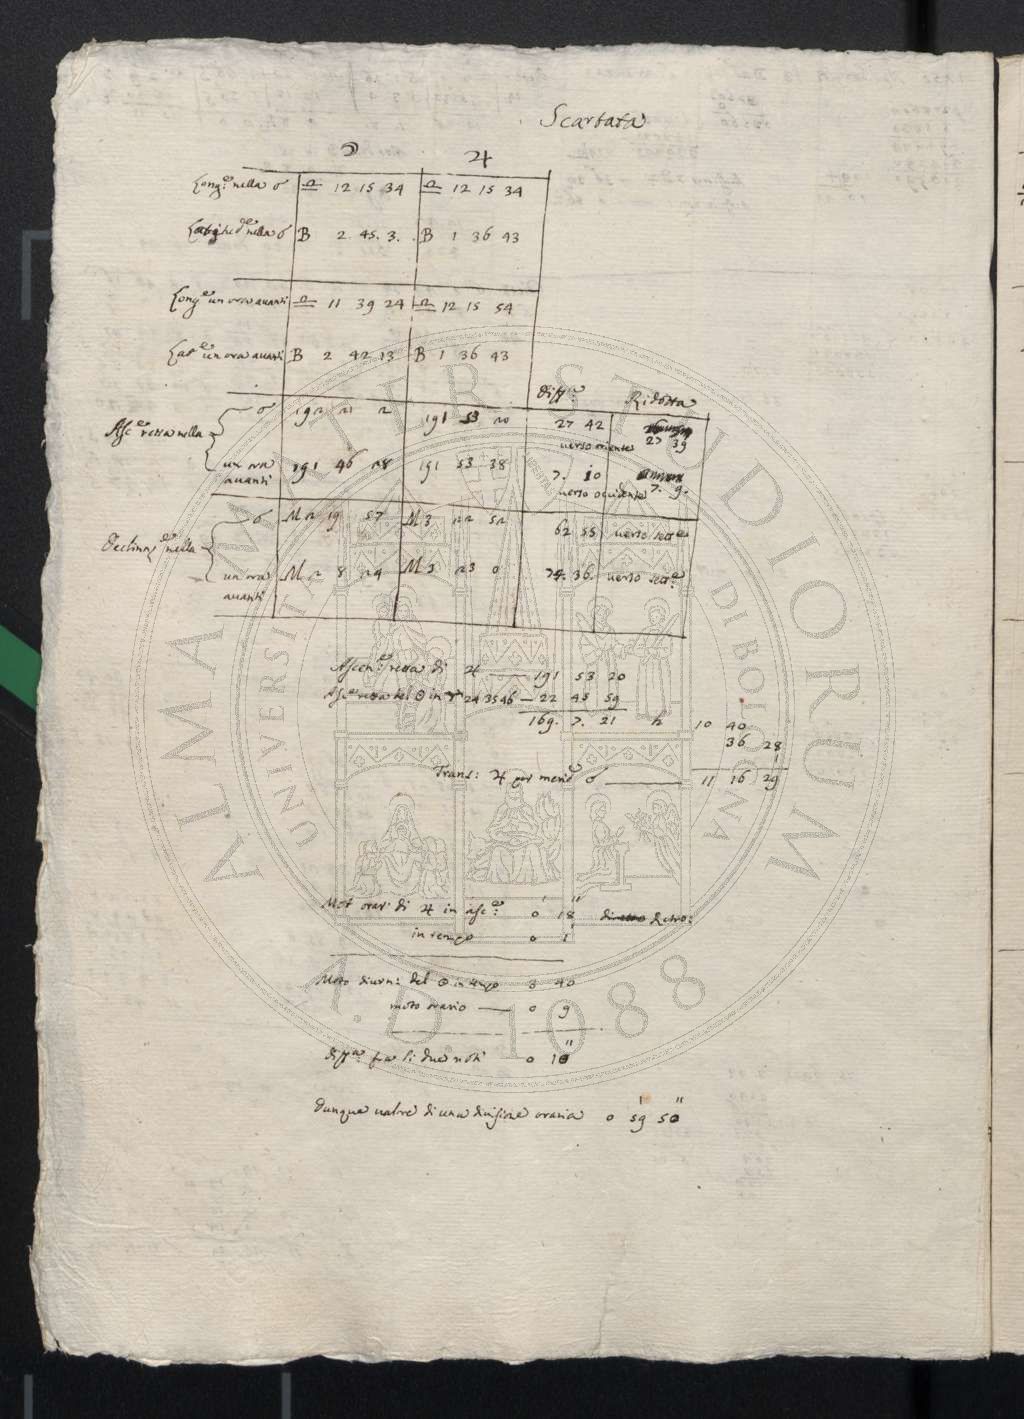 Scartata
☽ ♃
Long.e nella ☌ ♎ 12 15 34 ♎ 12 15 34
Latit.e nella ☌ B 2 45. 3. B 1 36 43
Long.e un ora avanti ♎ 11 39 24 ♎ 12 15 54
Lat.e un ora avanti B 2 42 13 B 1 36 43
Diff.a Ridotta
Asc.e retta nella
☌ 192 21 2 191 53 20 27 42 27 39
verso oriente
un ora avanti 191 46 28 191 53 38 7. 10 7. 9.
verso occidente
Declinaz.e nella
☌ M 2 19 57 M 3 22 52 62 55 verso sett.e
un ora avanti M 2 8 24 M 3 23 0 74. 36. verso sett.e
Ascen.e retta di ♃ 191 53 20
Asc.e retta del ☉ in ♈ 24 35 46 — 22 45 59
169. 7. 21 h 10 40
36 28
1
Trans: ♃ per merid ☌ 11 16 29
Mot orar: di ♃ in asc.e: 0 18 Retro:
in tempo 0 1
Moto diurn: del ☉ in tempo 3 40
moto orario — 0 9
diff.a fra li due moti 0 10
Dunque valore di una divisione oraria 0 59 50
ALMA MATER STUDIORUM
UNIVERSITA DI BOLOGNA
A.D. 1088